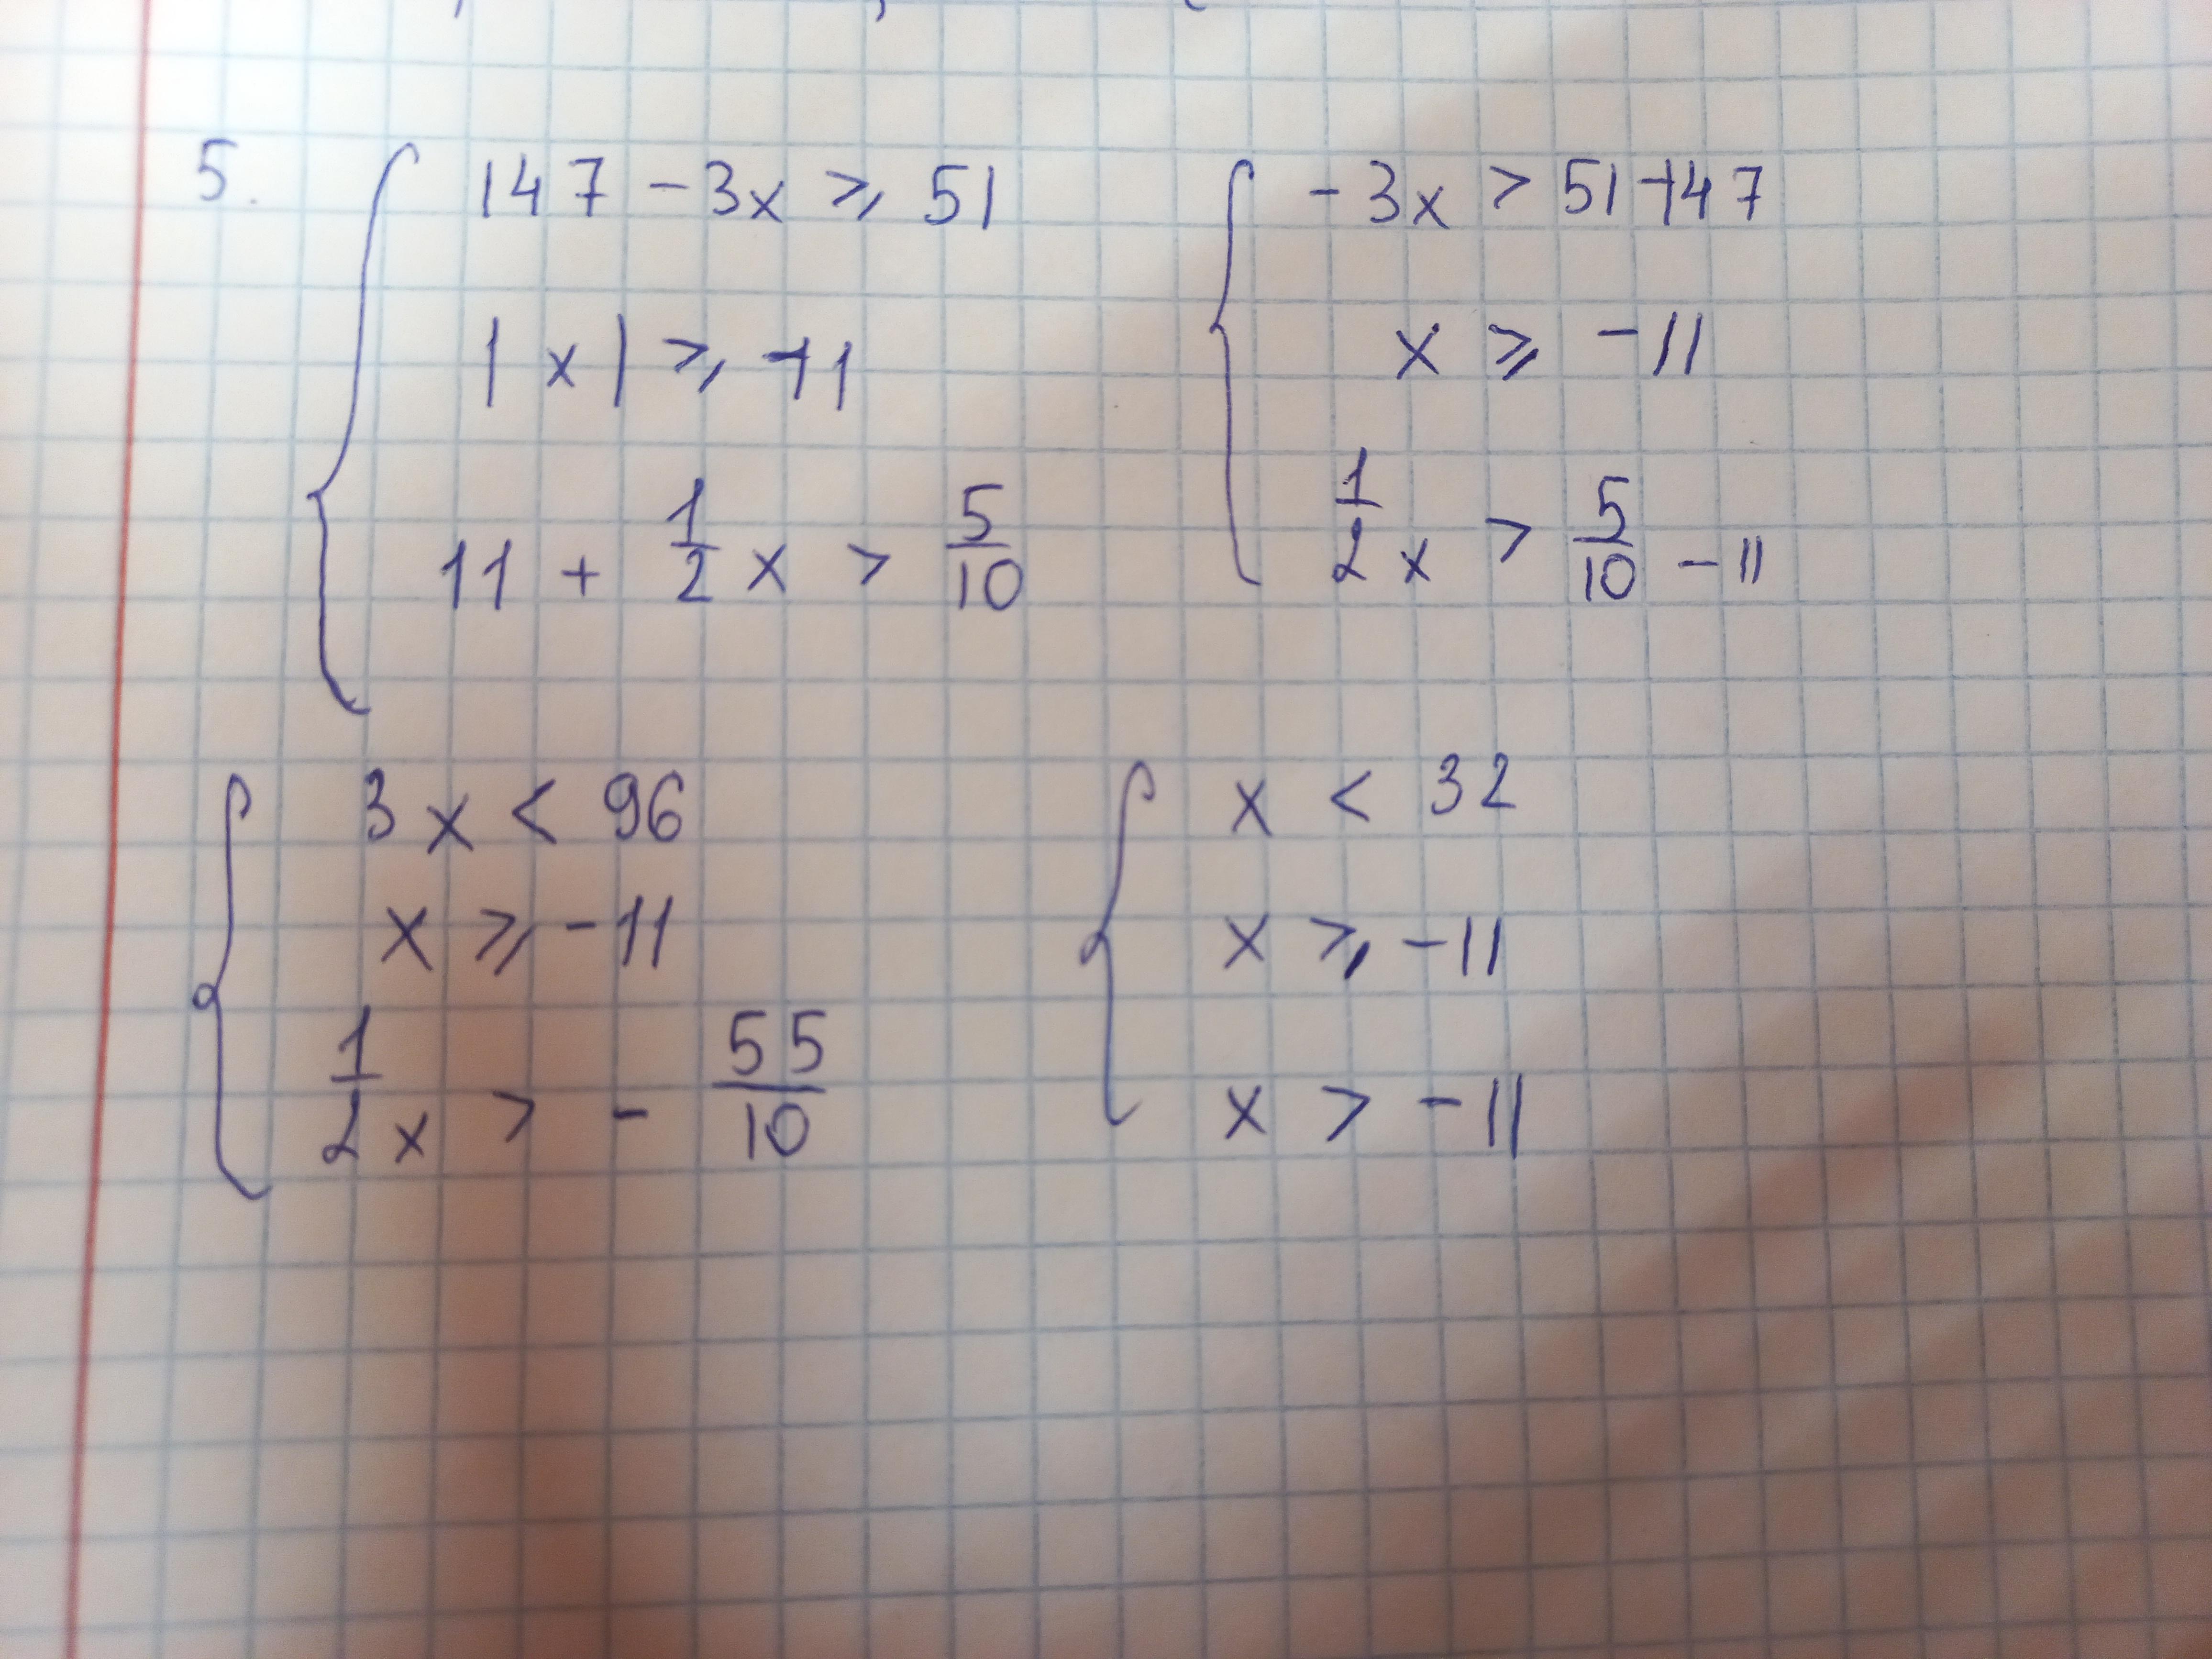 5. { 147 - 3x ⩾ 51
|x| ⩾ -11
11 + 1/2 x > 5/10
{ -3x > 51-147
x ⩾ -11
1/2 x > 5/10 - 11
{ 3x < 96
x ⩾ -11
1/2 x > - 55/10
{ x < 32
x ⩾ -11
x > -11